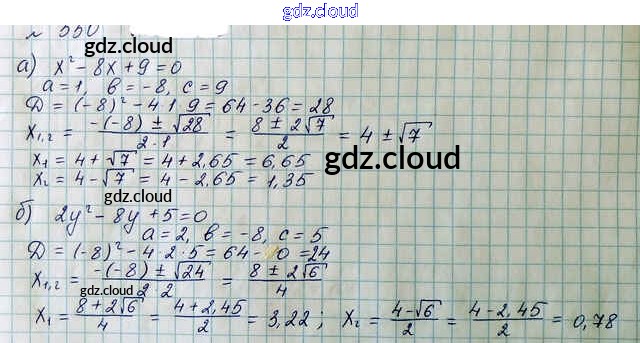 gdz.cloud
№ 550
gdz.cloud
а) x² - 8x + 9 = 0
a = 1, b = -8, c = 9
Д = (-8)² - 4·1·9 = 64 - 36 = 28
x₁,₂ = (-(-8) ± √28)/(2·1) = (8 ± 2√7)/2 = 4 ± √7
x₁ = 4 + √7 = 4 + 2,65 = 6,65
gdz.cloud
x₂ = 4 - √7 = 4 - 2,65 = 1,35
gdz.cloud
б) 2y² - 8y + 5 = 0
a = 2, b = -8, c = 5
Д = (-8)² - 4·2·5 = 64 - 40 = 24
x₁,₂ = (-(-8) ± √24)/(2·2) = (8 ± 2√6)/4
gdz.cloud
x₁ = (8 + 2√6)/4 = (4 + 2,45)/2 = 3,22; x₂ = (4 - √6)/2 = (4 - 2,45)/2 = 0,78
gdz.cloud